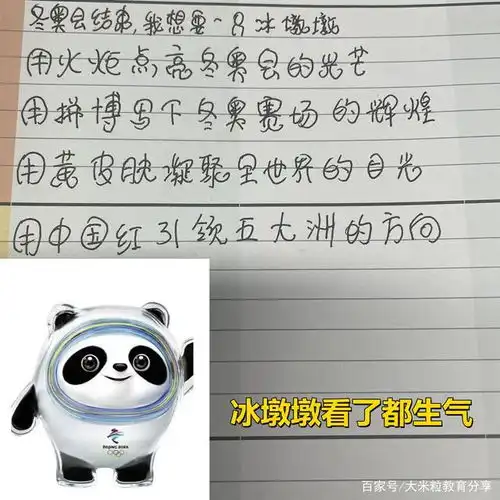 冬奥会结束,我想要一只冰墩墩
用火炬点亮冬奥会的光芒
用拼博写下冬奥赛场的辉煌
用黄皮肤凝聚全世界的目光
用中国红引领五大洲的方向
BEIJING 2022
冰墩墩看了都生气
百家号/大米粒教育分享